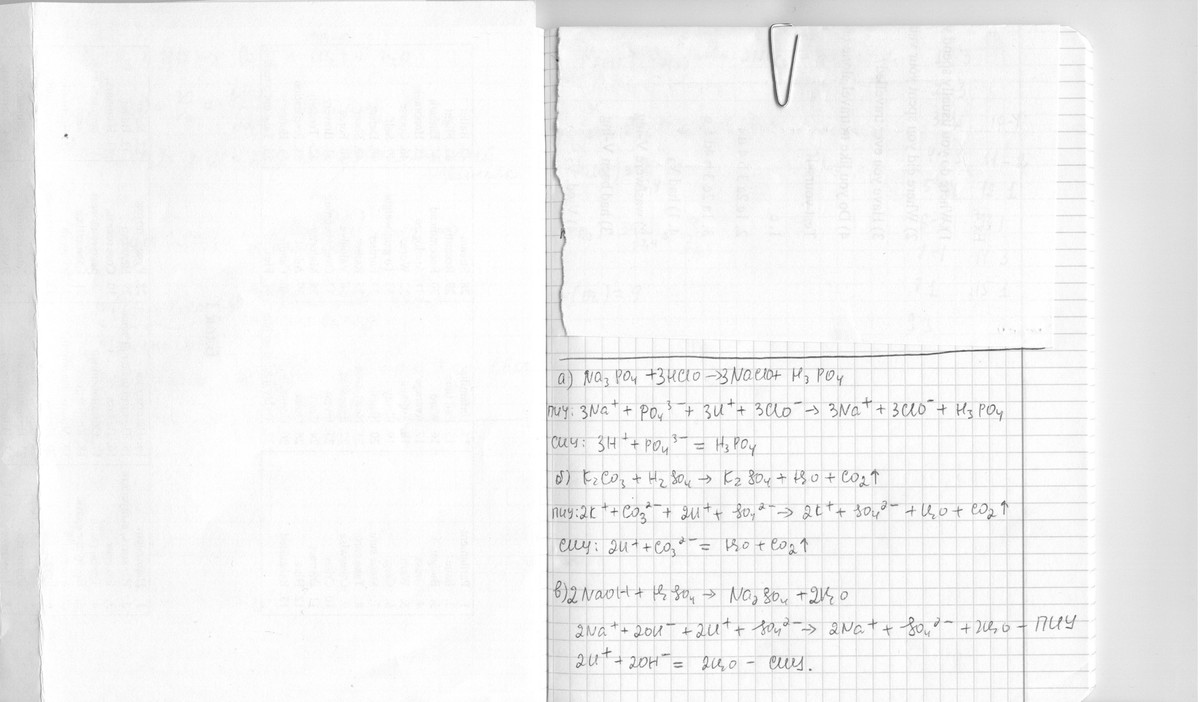 а) Na₃PO₄ + 3HClO → 3NaClO + H₃PO₄
ПИУ: 3Na⁺ + PO₄³⁻ + 3H⁺ + 3ClO⁻ → 3Na⁺ + 3ClO⁻ + H₃PO₄
СИУ: 3H⁺ + PO₄³⁻ = H₃PO₄
б) K₂CO₃ + H₂SO₄ → K₂SO₄ + H₂O + CO₂↑
ПИУ: 2K⁺ + CO₃²⁻ + 2H⁺ + SO₄²⁻ → 2K⁺ + SO₄²⁻ + H₂O + CO₂↑
СИУ: 2H⁺ + CO₃²⁻ = H₂O + CO₂↑
в) 2NaOH + H₂SO₄ → Na₂SO₄ + 2H₂O
2Na⁺ + 2OH⁻ + 2H⁺ + SO₄²⁻ → 2Na⁺ + SO₄²⁻ + 2H₂O - ПИУ
2H⁺ + 2OH⁻ = 2H₂O - СИУ.